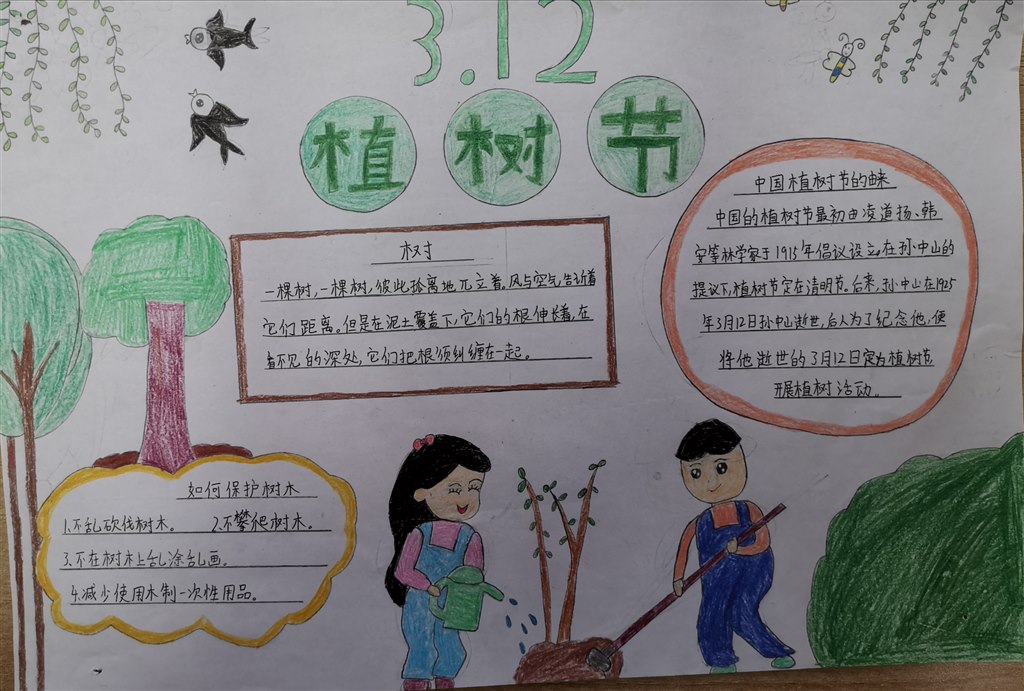 3.12
植树节
树
一棵树,一棵树,彼此孤离地兀立着。风与空气,告诉着
它们距离。但是在泥土覆盖下,它们的根伸长着,在
看不见的深处,它们把根须纠缠在一起。
中国植树节的由来
中国的植树节最初由凌道扬、韩
安等林学家于1915年倡议设立。在孙中山的
提议下,植树节定在清明节。后来,孙中山在1925
年3月12日孙中山逝世,后人为了纪念他,便
将他逝世的3月12日定为植树节
开展植树活动。
如何保护树木
1.不乱砍伐树木。 2.不攀爬树木。
3.不在树木上乱涂乱画。
4.减少使用木制一次性用品。